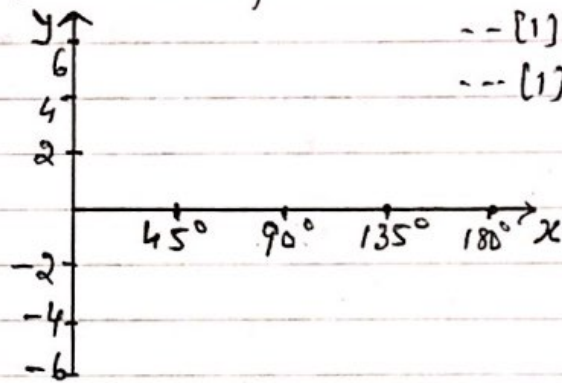 y
-- [1]
6
--- [1]
4
2
45° 90° 135° 180° x
-2
-4
-6